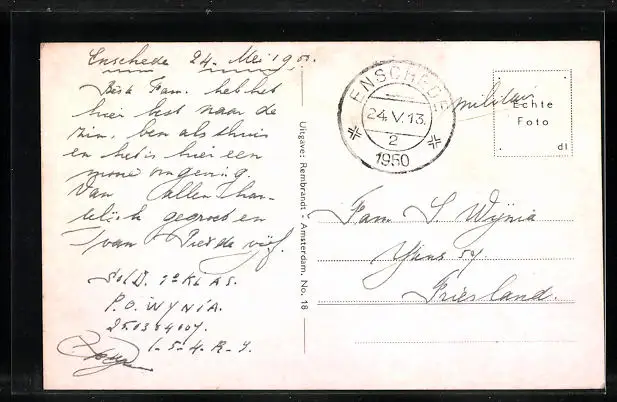 Enschede 24 Mei 1950.
Beste Fam. heb het
hier best naar de
zin, ben als thuis
en het is hier een
mooie omgeving.
Van allen har-
telijk gegroet en
van Piet de vijf.
Sold. 1e KLAS.
P.O. WYNIA.
1-5-4. R-I.
Uitgave: Rembrandt - Amsterdam. No. 18
ENSCHEDE
24.V.13.
2
1950
militair
Echte
Foto
dl
Fam. S. Wijnia
Friesland.